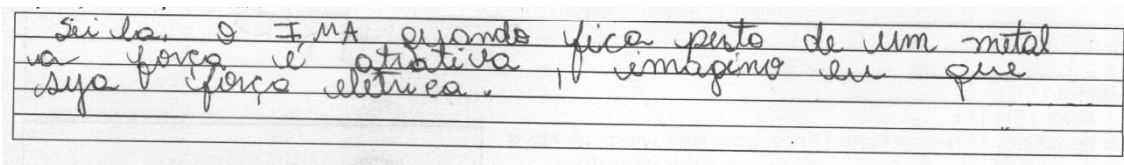 Sei la. O IMA quando fica perto de um metal
ua força é atrativa, imagino eu que
seja força eletrica.